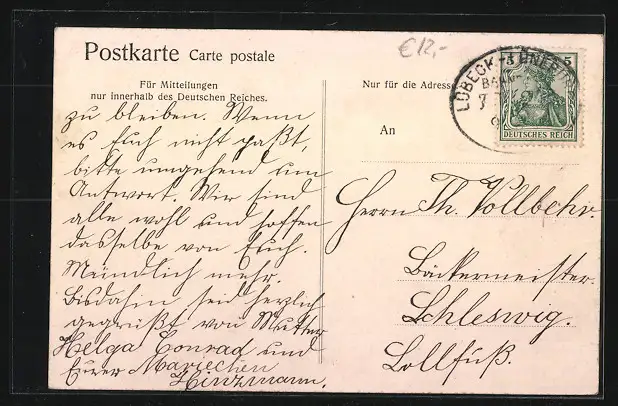 Postkarte Carte postale
€12,-
Für Mitteilungen
nur innerhalb des Deutschen Reiches.
Nur für die Adresse
An
LÜBECK
BAHN
5
DEUTSCHES REICH
zu bleiben. Wenn
es Euch nicht paßt,
bitte umgehend um
Antwort. Wir sind
alle wohl und hoffen
dasselbe von Euch.
Mündlich mehr.
Bisdahin seid herzlich
gegrüßt von Mutter
Helga Conrad und
Eurer Mariechen
Hinzmann.
Herrn Th. Vollbehr.
Bäckermeister.
Schleswig.
Lollfuß.